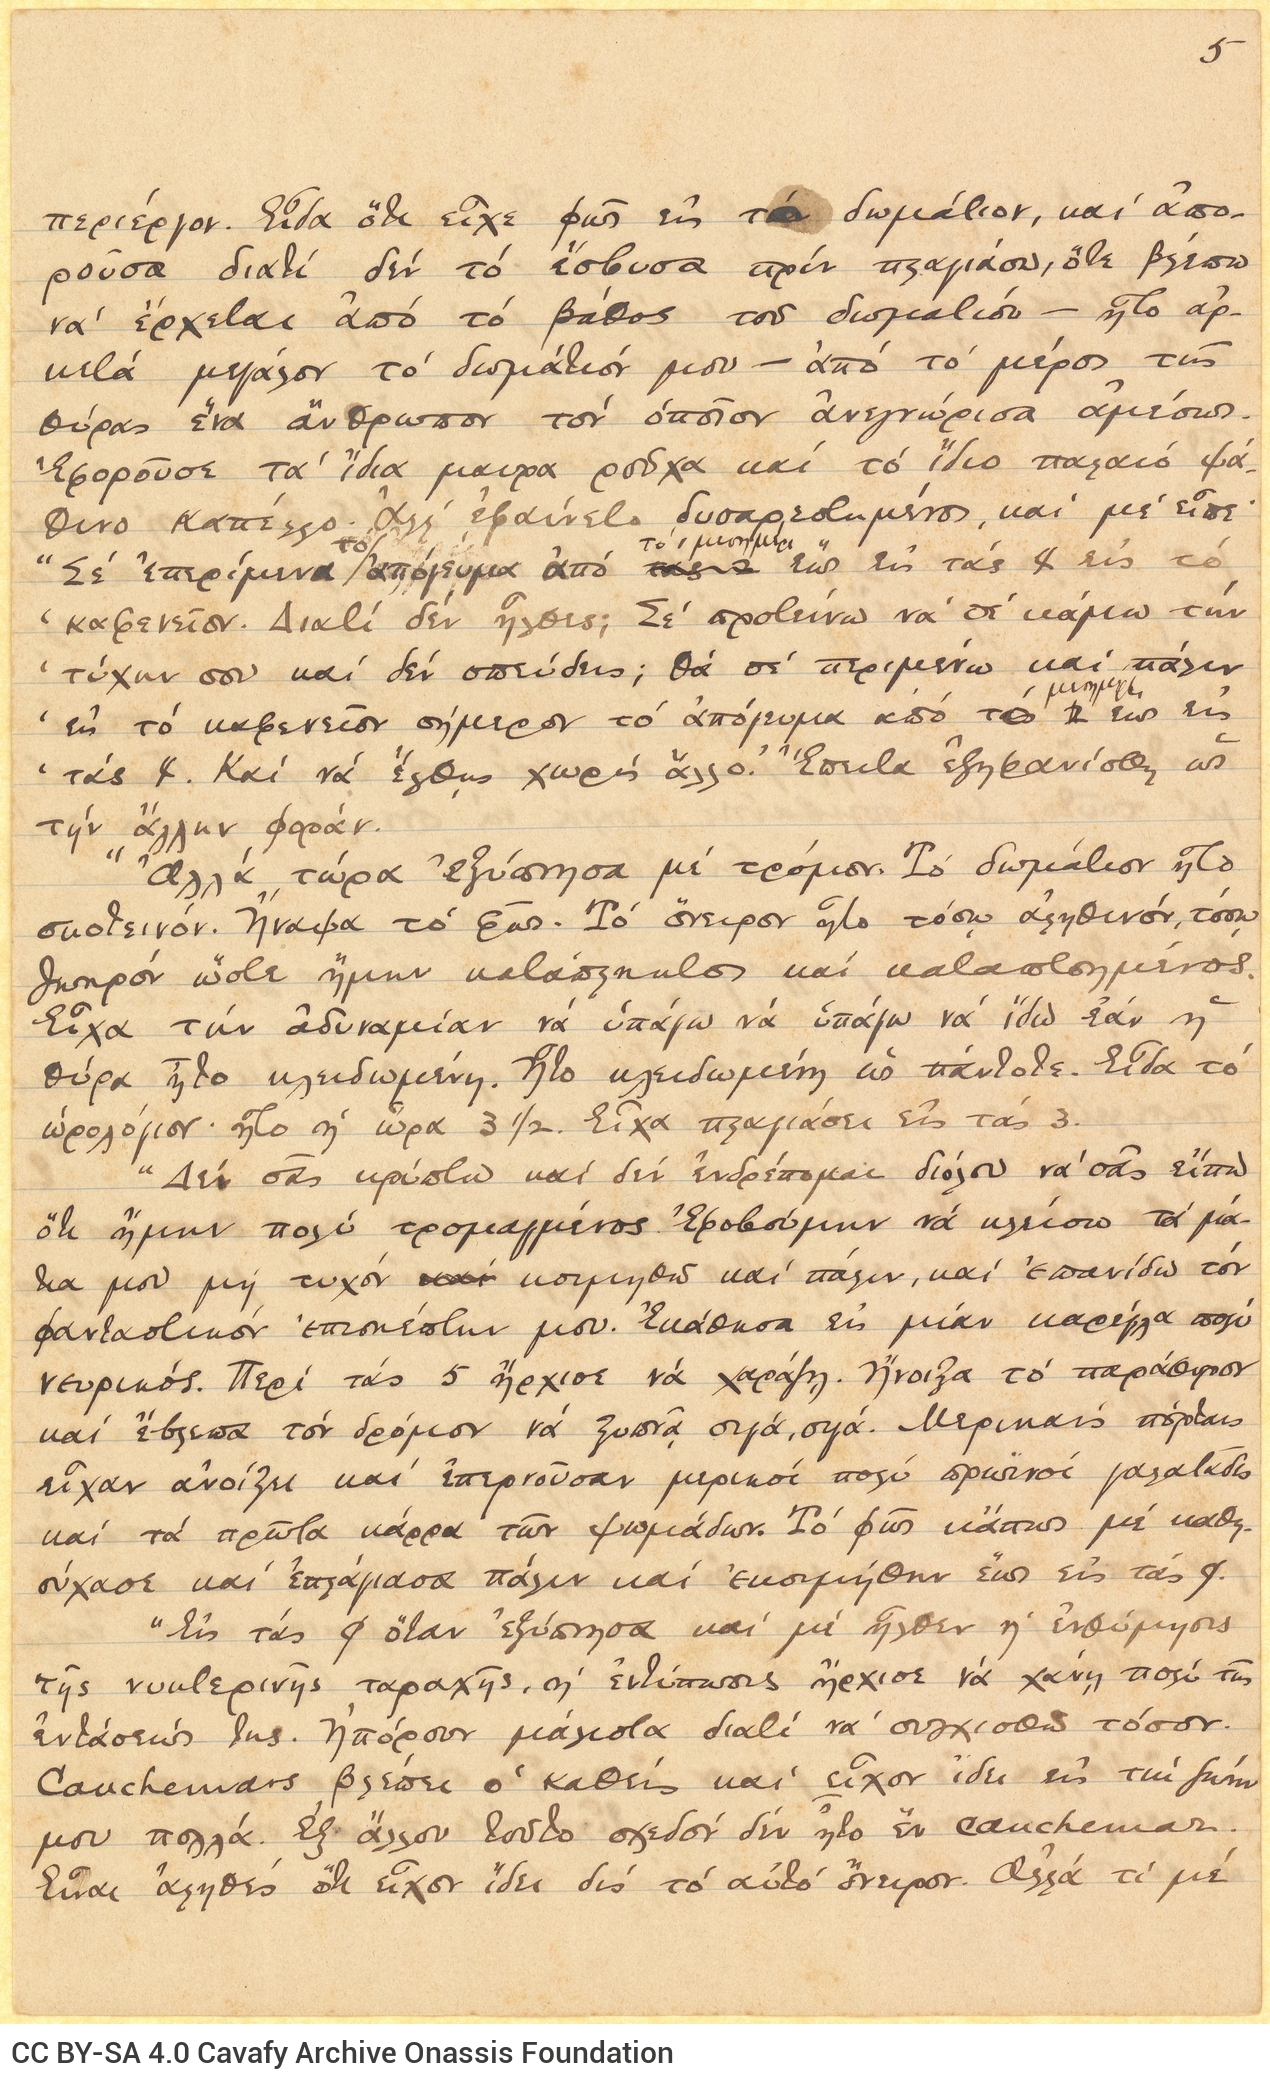 5
περιέργον. Εἶδα ὅτι εἶχε φῶς εἰς τὸ δωμάτιον, καὶ ἀπο-
ροῦσα διατί δὲν τὸ ἔσβυσα πρὶν πλαγιάσω, ὅτε βλέπω
νὰ ἔρχεται ἀπὸ τὸ βάθος τοῦ δωματίου — ἦτο ἀρ-
κετὰ μεγάλον τὸ δωμάτιόν μου — ἀπὸ τὸ μέρος τῆς
θύρας ἕνα ἄνθρωπον τὸν ὁποῖον ἀνεγνώρισα ἀμέσως.
Ἐφοροῦσε τὰ ἴδια μαυρα ροῦχα καὶ τὸ ἴδιο παλαιό ψά-
θινο καπέλλο. Ἀλλ' ἐφαίνετο δυσαρεστημένος, καὶ μὲ εἶπε·
"Σὲ ἐπερίμενα τὸ ἀπόγευμα ἀπὸ τὸ μεσημέρι ἕως εἰς τὰς 4 εἰς τὸ
‘ καφενεῖον. Διατί δὲν ἦλθες; Σὲ προτείνω νὰ σὲ κάμω τὴν
‘ τύχην σου καὶ δὲν σπεύδεις; Θὰ σὲ περιμένω καὶ πάλιν
‘ εἰς τὸ καφενεῖον σήμερον τὸ ἀπόγευμα ἀπὸ τὸ μεσημέρι ἕως εἰς
‘ τὰς 4. Καὶ νὰ ἔλθῃς χωρὶς ἄλλο." Ἔπειτα ἐξηφανίσθη ὡς
τὴν ἄλλην φοράν.
"Ἀλλὰ τώρα ἐξύπνησα μὲ τρόμον. Τὸ δωμάτιον ἦτο
σκοτεινόν. Ἤναψα τὸ φῶς. Τὸ ὄνειρον ἦτο τόσῳ ἀληθινόν, τόσῳ
ζωηρόν ὥστε ἤμην κατάπληκτος καὶ καταπτοημένος.
Εἶχα τὴν ἀδυναμίαν νὰ ὑπάγω νὰ ὑπάγω νὰ ἴδω ἐὰν ἡ
θύρα ἦτο κλειδωμένη. Ἦτο κλειδωμένη ὡς πάντοτε. Εἶδα τὸ
ὡρολόγιον· ἦτο ἡ ὥρα 3 1/2. Εἶχα πλαγιάσει εἰς τὰς 3.
"Δὲν σᾶς κρύπτω καὶ δὲν ἐνδρέπομαι διόλου νὰ σᾶς εἴπω
ὅτι ἤμην πολὺ τρομαγμένος. Ἐφοβούμην νὰ κλείσω τὰ μά-
τια μου μὴ τυχὸν καὶ κοιμηθῶ καὶ πάλιν, καὶ ἐπανίδω τὸν
φανταστικὸν ἐπισκέπτην μου. Ἐκάθησα εἰς μίαν καρέγλα πολὺ
νευρικός. Περὶ τὰς 5 ἤρχισε νὰ χαράζῃ. Ἤνοιξα τὸ παράθυρον
καὶ ἔβλεπα τὸν δρόμον νὰ ξυπνᾷ σιγά, σιγά. Μερικαὶς πόρταις
εἶχαν ἀνοίξει καὶ ἐπερνοῦσαν μερικοὶ πολὺ πρωϊνοὶ γαλατάδες
καὶ τὰ πρῶτα κάρρα τῶν ψωμάδων. Τὸ φῶς κάπως μὲ καθη-
σύχασε καὶ ἐπλάγιασα πάλιν καὶ ἐκοιμήθην ἕως εἰς τὰς 9.
"Εἰς τὰς 9 ὅταν ἐξύπνησα καὶ μὲ ἦλθεν ἡ ἐνθύμησις
τῆς νυκτερινῆς ταραχῆς, ἡ ἐντύπωσις ἤρχισε νὰ χάνῃ πολὺ τῆς
ἐντάσεώς της. Ἠπόρουν μάλιστα διατί νὰ συγχισθῶ τόσον.
Cauchemars βλέπει ὁ καθεὶς καὶ εἶχον ἰδεῖ εἰς τὴν ζωήν
μου πολλά. Ἐξ ἄλλου τοῦτο σχεδόν δὲν ἦτο ἕν cauchemar.
Εἶναι ἀληθὲς ὅτι εἶχον ἴδει δὶς τὸ αὐτὸ ὄνειρον. Ἀλλὰ τί μὲ
CC BY-SA 4.0 Cavafy Archive Onassis Foundation